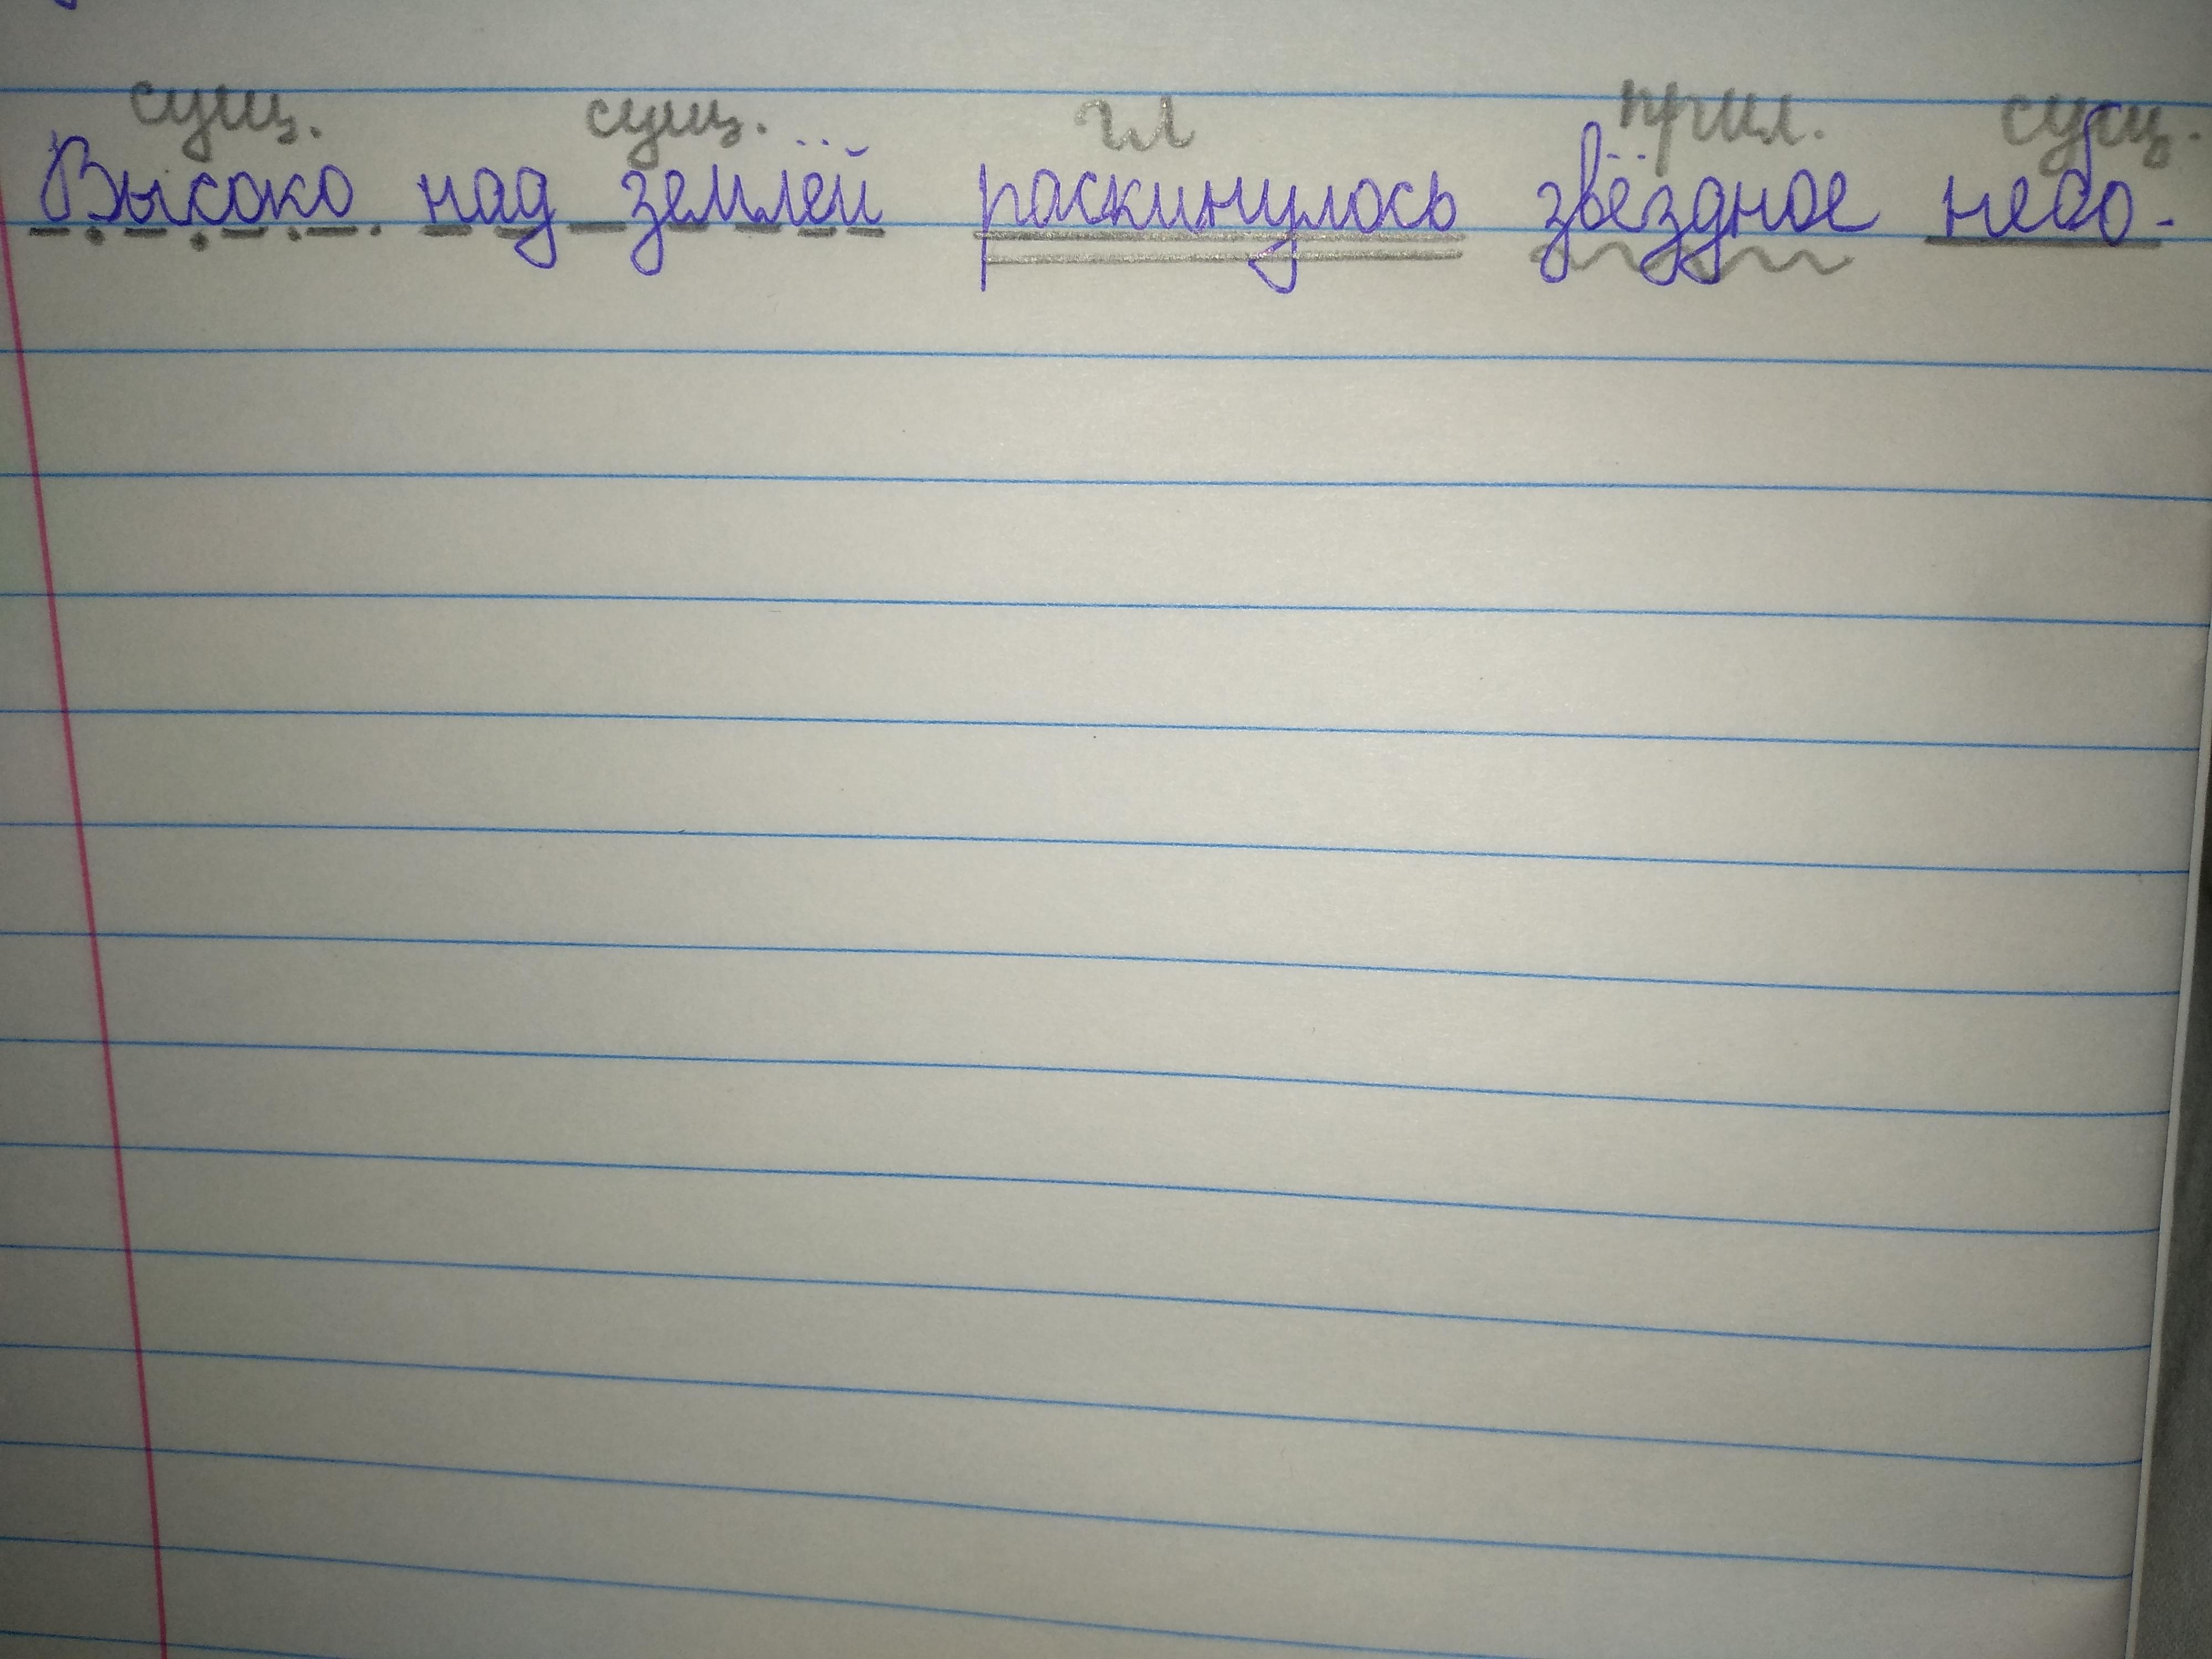 сущ. сущ. гл прил. сущ.
Высоко над землёй раскинулось звёздное небо.